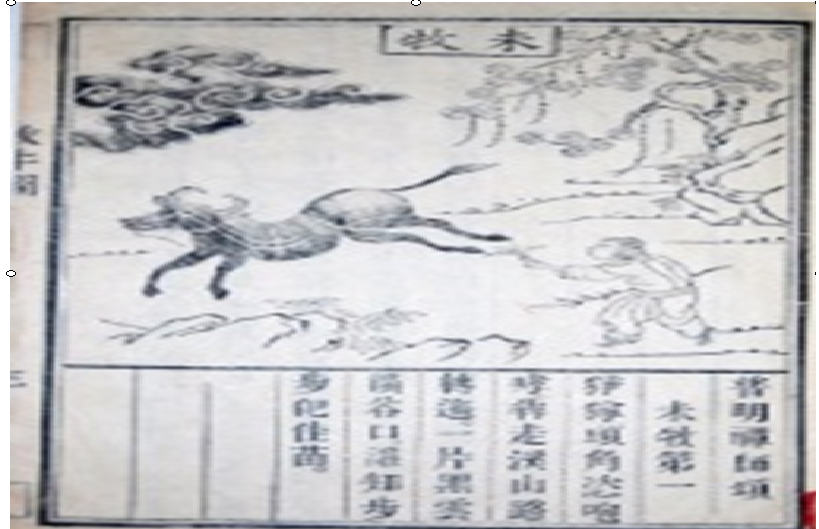 未牧
普明禪師頌
未牧第一
猙獰頭角恣咆
哮奔走溪山路
轉遙一片黑雲
橫谷口誰知步
步犯佳苗